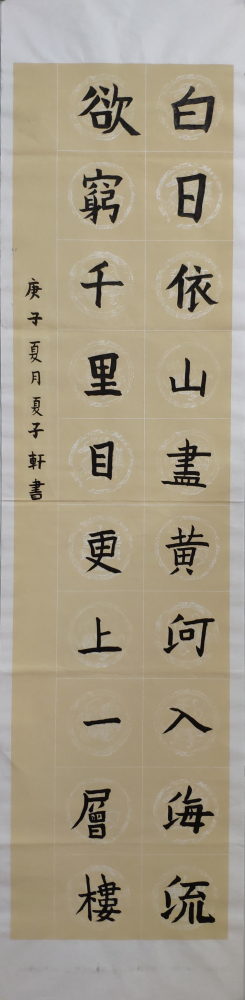 白日依山盡黃河入海流
欲窮千里目更上一層樓
庚子夏月夏子軒書